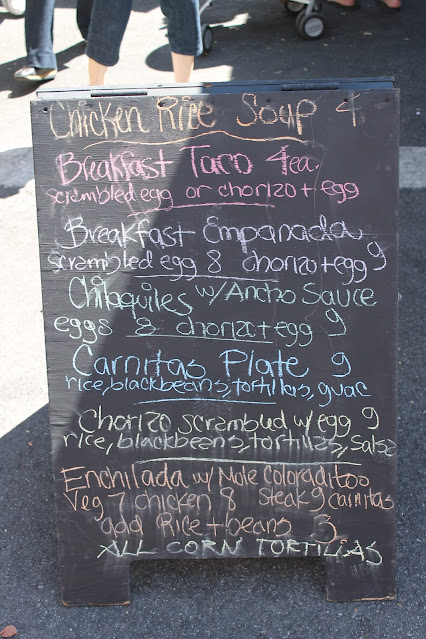 Chicken Rice Soup 4
Breakfast Taco 4ea.
scrambled egg or chorizo + egg
Breakfast Empanada
scrambled egg 8 chorizo + egg 9
Chilaquiles w/Ancho Sauce
eggs 8 chorizo + egg 9
Carnitas Plate 9
rice, blackbeans, tortillas, guac
Chorizo scrambled w/egg 9
rice, blackbeans, tortillas, salsa
Enchilada w/ Mole Coloraditos
Veg 7 chicken 8 steak 9 carnitas
add Rice + beans 3
ALL CORN TORTILLAS